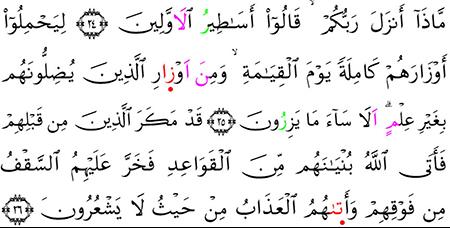 مَّاذَآ أَنزَلَ رَبُّكُمْ ۙ قَالُوٓا۟ أَسَـٰطِيرُ الَاوَّلِينَ ۝٢٤ لِيَحْمِلُوٓا۟
أَوْزَارَهُمْ كَامِلَةً يَوْمَ الْقِيَـٰمَةِ ۙ وَمِنَ اَوْزِارِ الَّذِينَ يُضِلُّونَهُم
بِغَيْرِ عِلْمٍ ۗ اَلَا سَآءَ مَا يَزِرُونَ ۝٢٥ قَدْ مَكَرَ الَّذِينَ مِن قَبْلِهِمْ
فَأَتَى اللَّهُ بُنْيَـٰنَهُم مِّنَ الْقَوَاعِدِ فَخَرَّ عَلَيْهِمُ السَّقْفُ
مِن فَوْقِهِمْ وَأَتىٰهُمُ الْعَذَابُ مِنْ حَيْثُ لَا يَشْعُرُونَ ۝٢٦